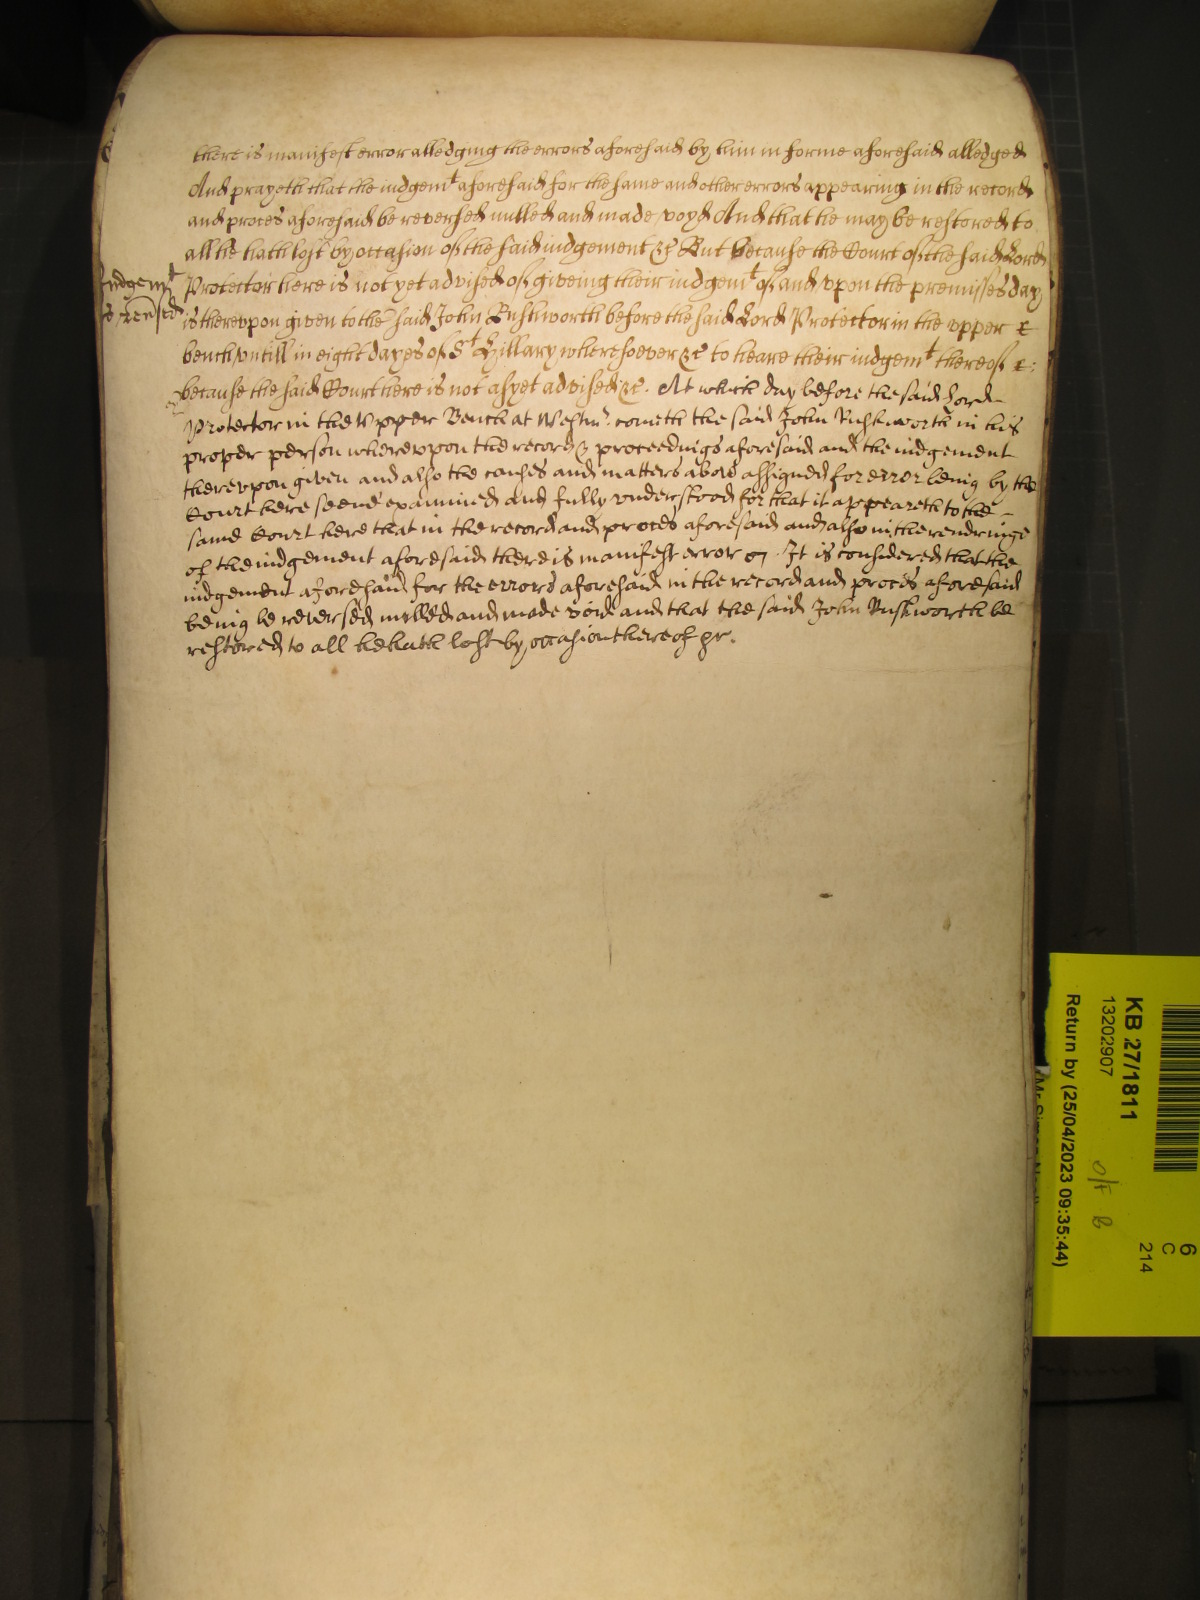 there is manifest error alledging the errors aforesaid by him in forme aforesaid alledged
And prayeth that the iudgemt aforesaid for the same and other errors appearing in the record
and proces aforesaid be reversed nulled and made voyd And that he may be restored to
all he hath lost by occasion of the said iudgement &c But because the Court of the said Lord
Protector here is not yet advised of giveing their iudgemt of and vpon the premisses day
is therevpon given to the said John Rushworth before the said Lord Protector in the vpper
bench vntill in eight dayes of St Hillary wheresoever &c to heare their iudgemt thereof &c:
because the said Court here is not as yet advised &c. At which day before the said Lord
Protector in the Vpper Bench at Westmr. cometh the said John Rushworth in his
proper person wherevpon the record & proceedings aforesaid and the iudgement
therevpon given and also the causes and matters above assigned for error being by the
Court here seene examined and fully vnderstood for that it appeareth to the
same Court here that in the record and proces aforesaid and also in the rendringe
of the iudgement aforesaid there is manifest error It is considered that the
iudgement aforesaid for the errors aforesaid in the record and proces aforesaid
being be reversed nulled and made void and that the said John Rushworth be
restored to all he hath lost by occasion thereof &c.
Iudgemt
is reūsed
KB 27/1811
13202907
Return by (25/04/2023 09:35:44)
6
C
214
O/F B